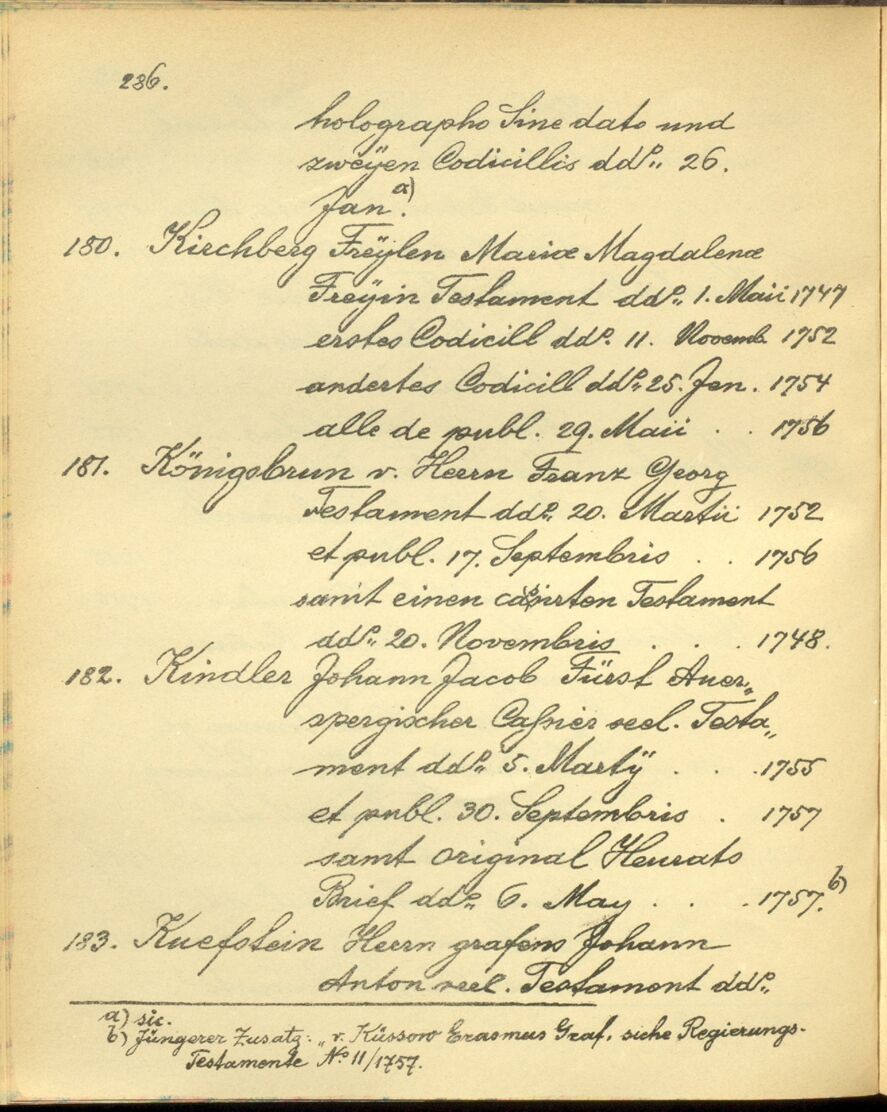 236.
holographo Sine dato und
zweÿen Codicillis ddº„ 26.
Jan.a)
180. Kirchberg Freÿlen Mariæ Magdalenæ
Freÿin Testament ddº„ 1. Maii 1747
erstes Codicill ddº. 11. Novemb. 1752
andertes Codicill ddº„ 25. Jen. 1754
alle de publ. 29. Maii . . 1756
181. Königsbrun v. Herrn Franz Georg
Testament ddº„ 20. Martii 1752
et publ. 17. Septembris . . 1756
samt einen Testament
ddº„ 20. Novembris . . . 1748.
182. Kindler Johann Jacob Fürst Auer„
spergischer Caßier seel. Testa„
ment ddº„ 5. Martÿ . . . 1755
et publ. 30. Septembris . 1757
samt original Heurats
Brief ddº„ 6. May . . . 1757.b)
183. Kuefstein Herrn grafens Johann
Anton seel. Testament ddº„
a) sic.
b) Jüngerer Zusatz: „v. Küssow Erasmus Graf, siehe Regierungs-
Testamente Nº 11/1757.